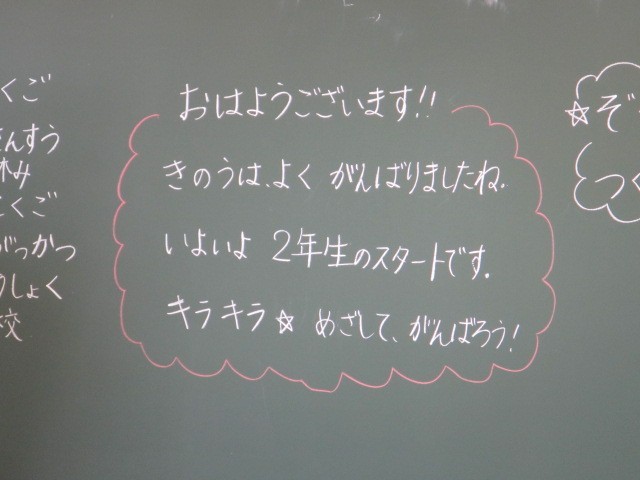 くご
さんすう
休み
こくご
がっかつ
うしょく
校
おはようございます!!
きのうは、よく がんばりましたね。
いよいよ 2年生のスタートです。
キラキラ☆ めざして、がんばろう!
☆ぞ
つく